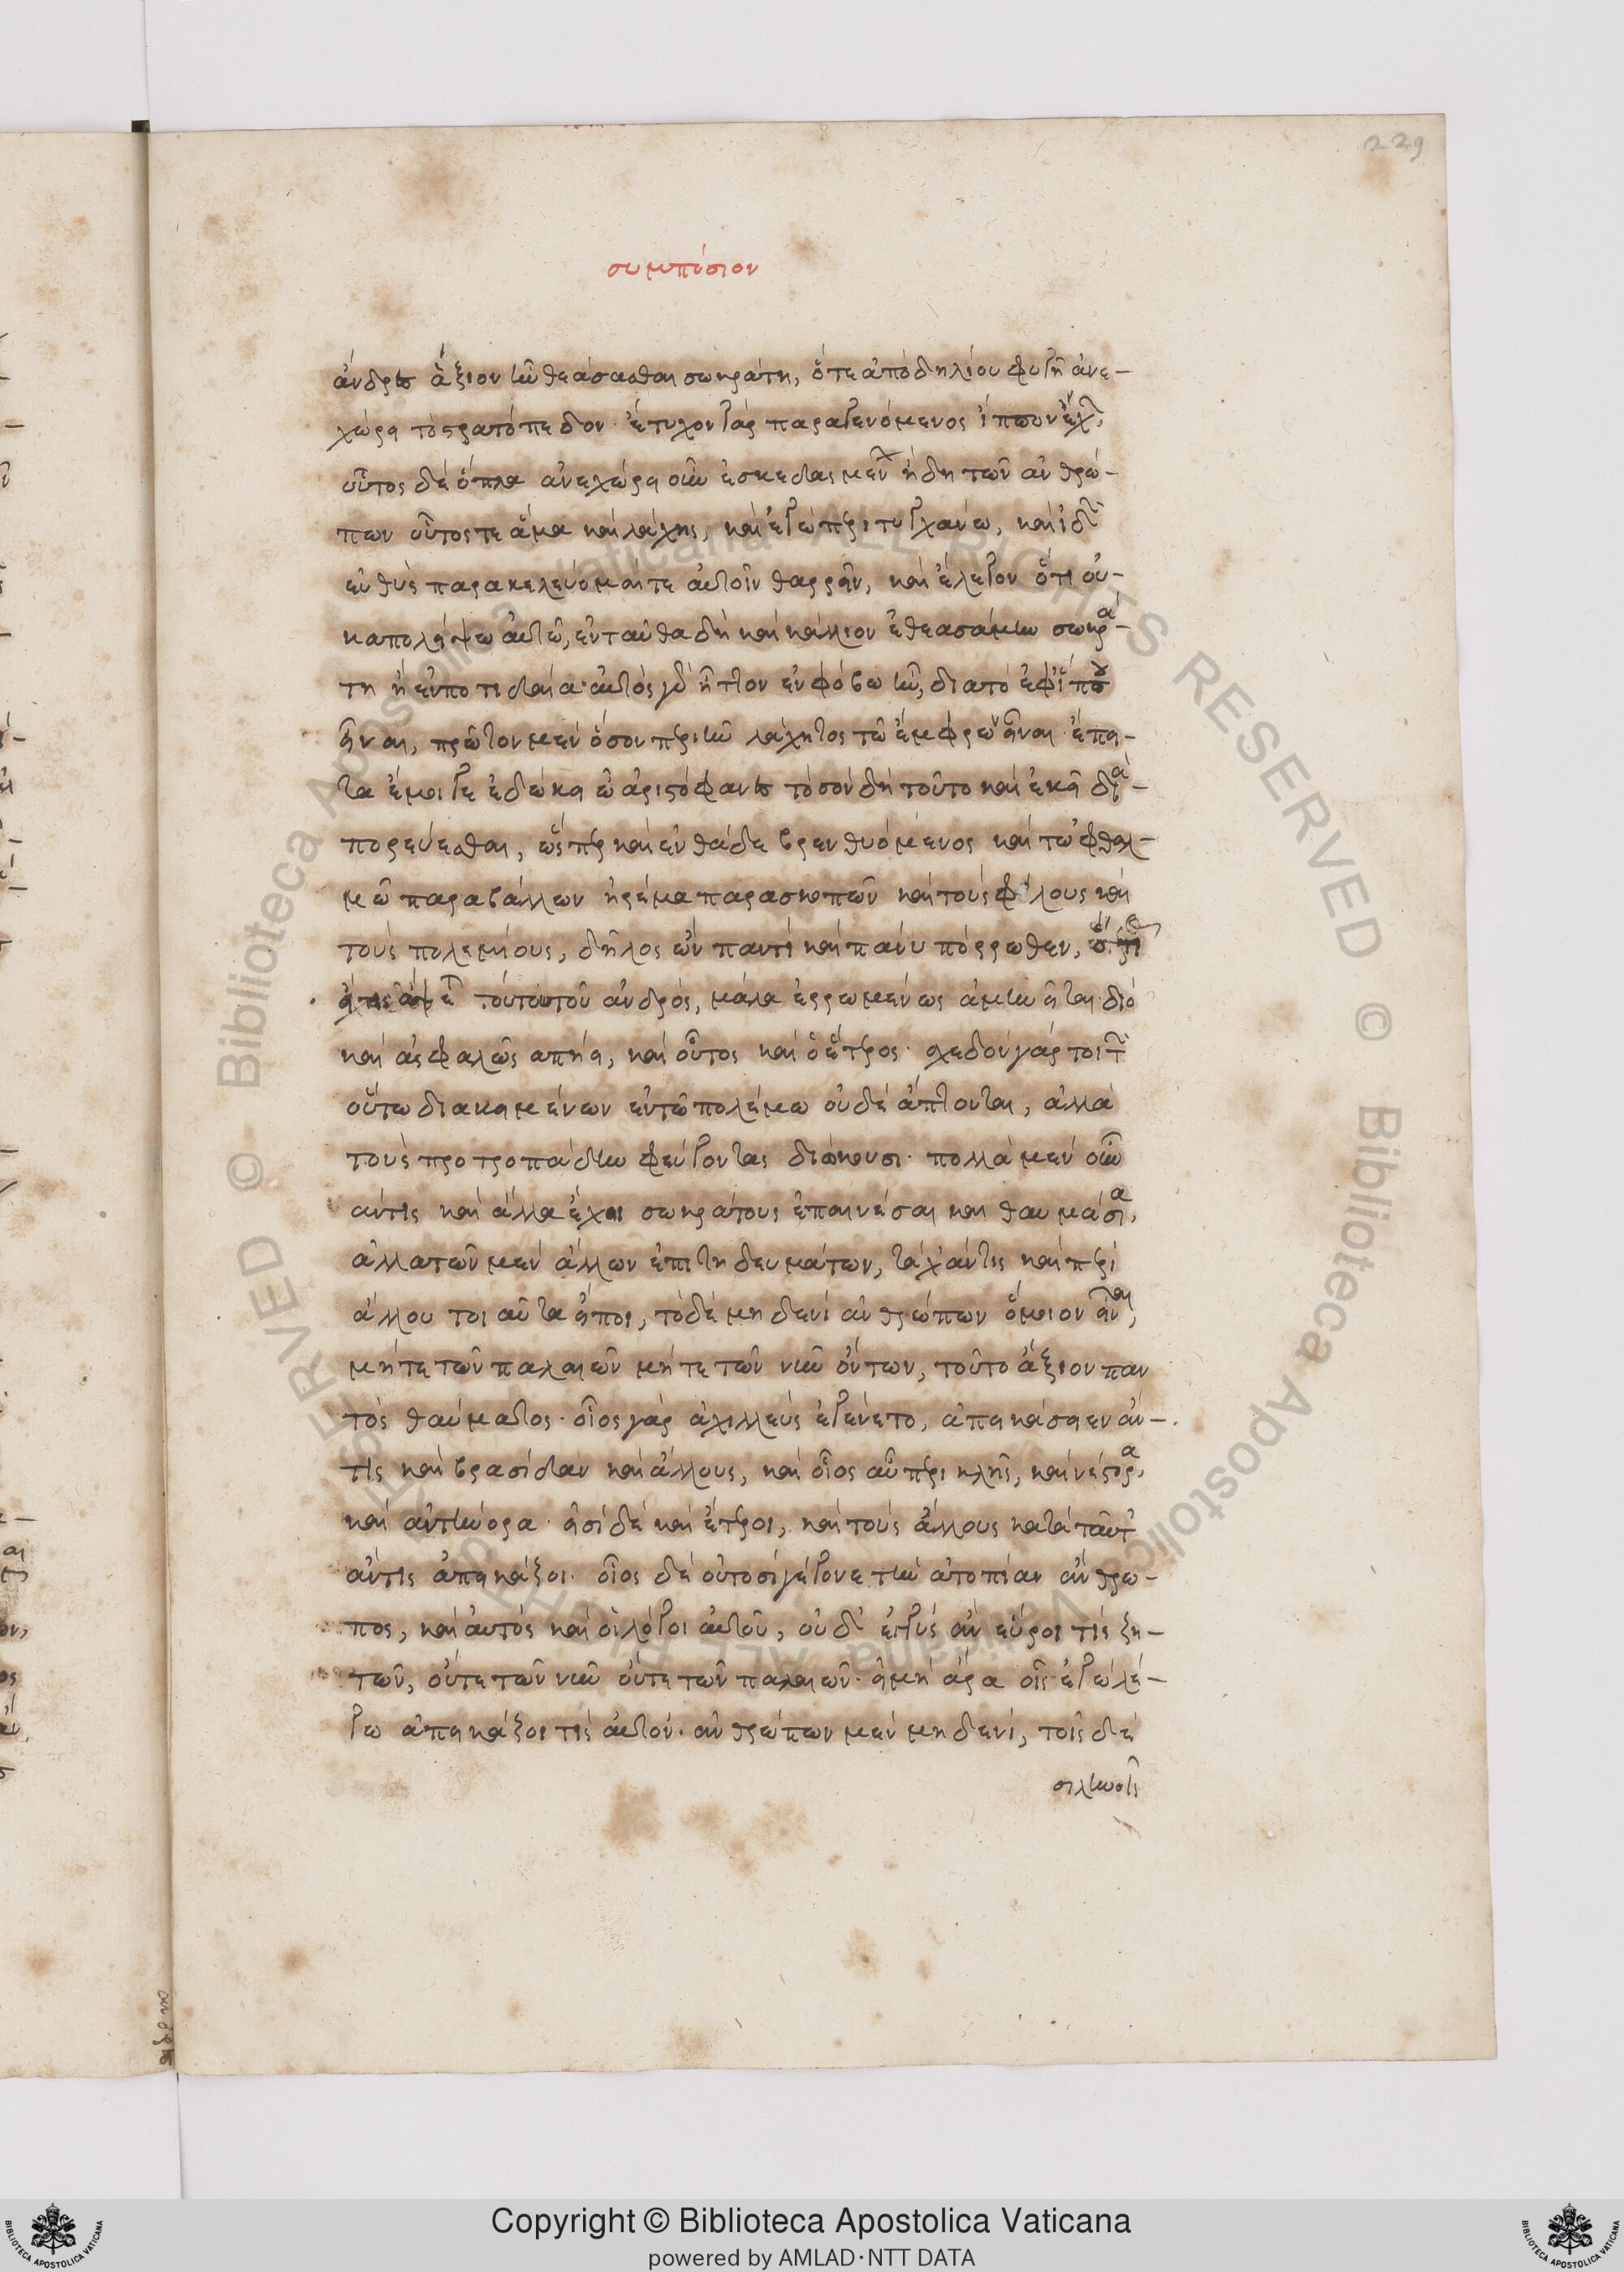 229
συμπόσιον
ἄνδρες ἄξιον ἦν θεάσασθαι σωκράτη, ὅτε ἀπὸ δηλίου φυγῆ ἀνε-
χώρει τὸ στρατόπεδον· ἔτυχον γὰρ παραγενόμενος ἵππον ἔχων,
οὗτος δὲ ὅπλα ἀνεχώρει οὖν ἐσκεδασμένων ἤδη τῶν ἀνθρώ-
πων οὗτός τε ἅμα καὶ λάχης, καὶ ἐγὼ περιτυγχάνω, καὶ ἰδὼν
εὐθὺς παρακελεύομαί τε αὐτοῖν θαρρεῖν, καὶ ἔλεγον ὅτι οὐ-
κ ἀπολείψω αὐτώ, ἐνταῦθα δὴ καὶ κάλλιον ἐθεασάμην σωκρά-
τη ἢ ἐν ποτιδαία· αὐτὸς γὰρ ἧττον ἐν φόβω ἦν, διὰ τὸ ἐφ' ἵππου
εἶναι, πρῶτον μὲν ὅσον περιῆν λάχητος τῶ ἔμφρων εἶναι· ἔπει-
τα ἔμοιγε ἐδόκει ὦ ἀριστόφανες τὸ σὸν δὴ τοῦτο καὶ ἐκεῖ δια-
πορεύεσθαι, ὥσπερ καὶ ἐνθάδε βρενθυόμενος καὶ τὠφθαλ-
μὼ παραβάλλων ἠρέμα παρασκοπῶν καὶ τοὺς φίλους καὶ
τοὺς πολεμίους, δῆλος ὢν παντὶ καὶ πάνυ πόρρωθεν,
τούτου τοῦ ἀνδρός, μάλα ἐρρωμένως ἀμυνεῖται· διὸ
καὶ ἀσφαλῶς ἀπήει, καὶ οὗτος καὶ ὁ ἕτερος· σχεδὸν γάρ τοι τῶν
οὕτω διακειμένων ἐν τῶ πολέμω οὐδὲ ἅπτονται, ἀλλὰ
τοὺς προτροπάδην φεύγοντας διώκουσι· πολλὰ μὲν οὖν
ἄν τις καὶ ἄλλα ἔχοι σωκράτους ἐπαινέσαι καὶ θαυμάσια,
ἀλλὰ τῶν μὲν ἄλλων ἐπιτηδευμάτων, τάχ' ἄν τις καὶ περὶ
ἄλλου τοιαῦτα εἴποι, τὸ δὲ μηδενὶ ἀνθρώπων ὅμοιον εἶναι,
μήτε τῶν παλαιῶν μήτε τῶν νῦν ὄντων, τοῦτο ἄξιον παν
τὸς θαύματος· οἷος γὰρ ἀχιλλεὺς ἐγένετο, ἀπεικάσειεν ἄν-
τις καὶ βρασίδαν καὶ ἄλλους, καὶ οἷος αὖ περικλῆς, καὶ νέστορα,
καὶ ἀντήνορα· εἰσὶ δὲ καὶ ἕτεροι, καὶ τοὺς ἄλλους κατὰ ταῦτ'
ἄν τις ἀπεικάζοι· οἷος δὲ οὑτοσὶ γέγονε τὴν ἀτοπίαν ἄνθρω-
πος, καὶ αὐτὸς καὶ οἱ λόγοι αὐτοῦ, οὐδ' ἐγγὺς ἂν εὕροι τὶς ζη-
τῶν, οὔτε τῶν νῦν οὔτε τῶν παλαιῶν· εἰ μὴ ἄρα οἷς ἐγὼ λέ-
γω ἀπεικάζοι τὶς αὐτόν· ἀνθρώπων μὲν μηδενί, τοῖς δὲ
σιληνοῖς
Copyright © Biblioteca Apostolica Vaticana
powered by AMLAD·NTT DATA